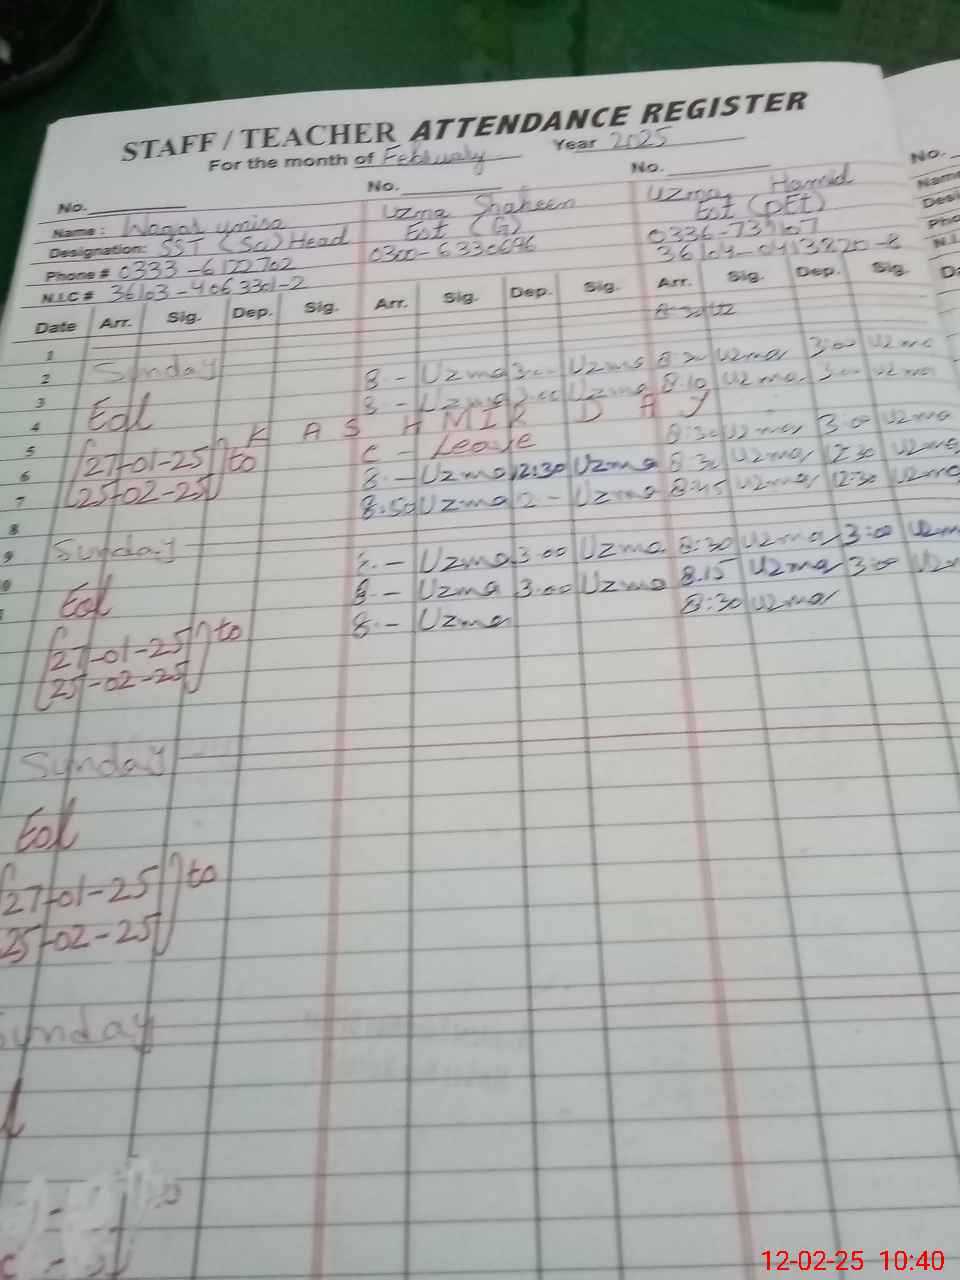 STAFF / TEACHER ATTENDANCE REGISTER
For the month of February Year 2025
No. No. No. No.
Name: Uzma Shaheen Uzma Hamid Name
Designation: SST (Sci) Head Est (G) Est (PET)
Phone # 0333-6122702 0300-6330696 0336-73
N.I.C # 36103-4063301-2 36104-0413820-8
Date Arr. Sig. Dep. Sig. Arr. Sig. Dep. Sig. Arr. Sig. Dep. Sig.
1
2 Sunday
3 8 - Uzma 3:00 Uzma Uzma 3:00 Uzma
4 Eol 8 - Uzma 3:00 Uzma 8:10 Uzma 3:00 Uzma
5 KASHMIR DAY
6 27-01-25 to C - Leave 8:30 Uzma 3:00 Uzma
7 25-02-25 8 - Uzma 12:30 Uzma 8:30 Uzma 12:30 Uzma
8 8:50 Uzma 2 - Uzma 8:45 Uzma 12:30 Uzma
9 Sunday
8 - Uzma 3:00 Uzma 8:30 Uzma 3:00 Uzma
Eol 8 - Uzma 3:00 Uzma 8:15 Uzma 3:00
8 - Uzma 8:30 Uzma
27-01-25 to
25-02-25
Sunday
Eol
27-01-25 to
25-02-25
Sunday
12-02-25 10:40